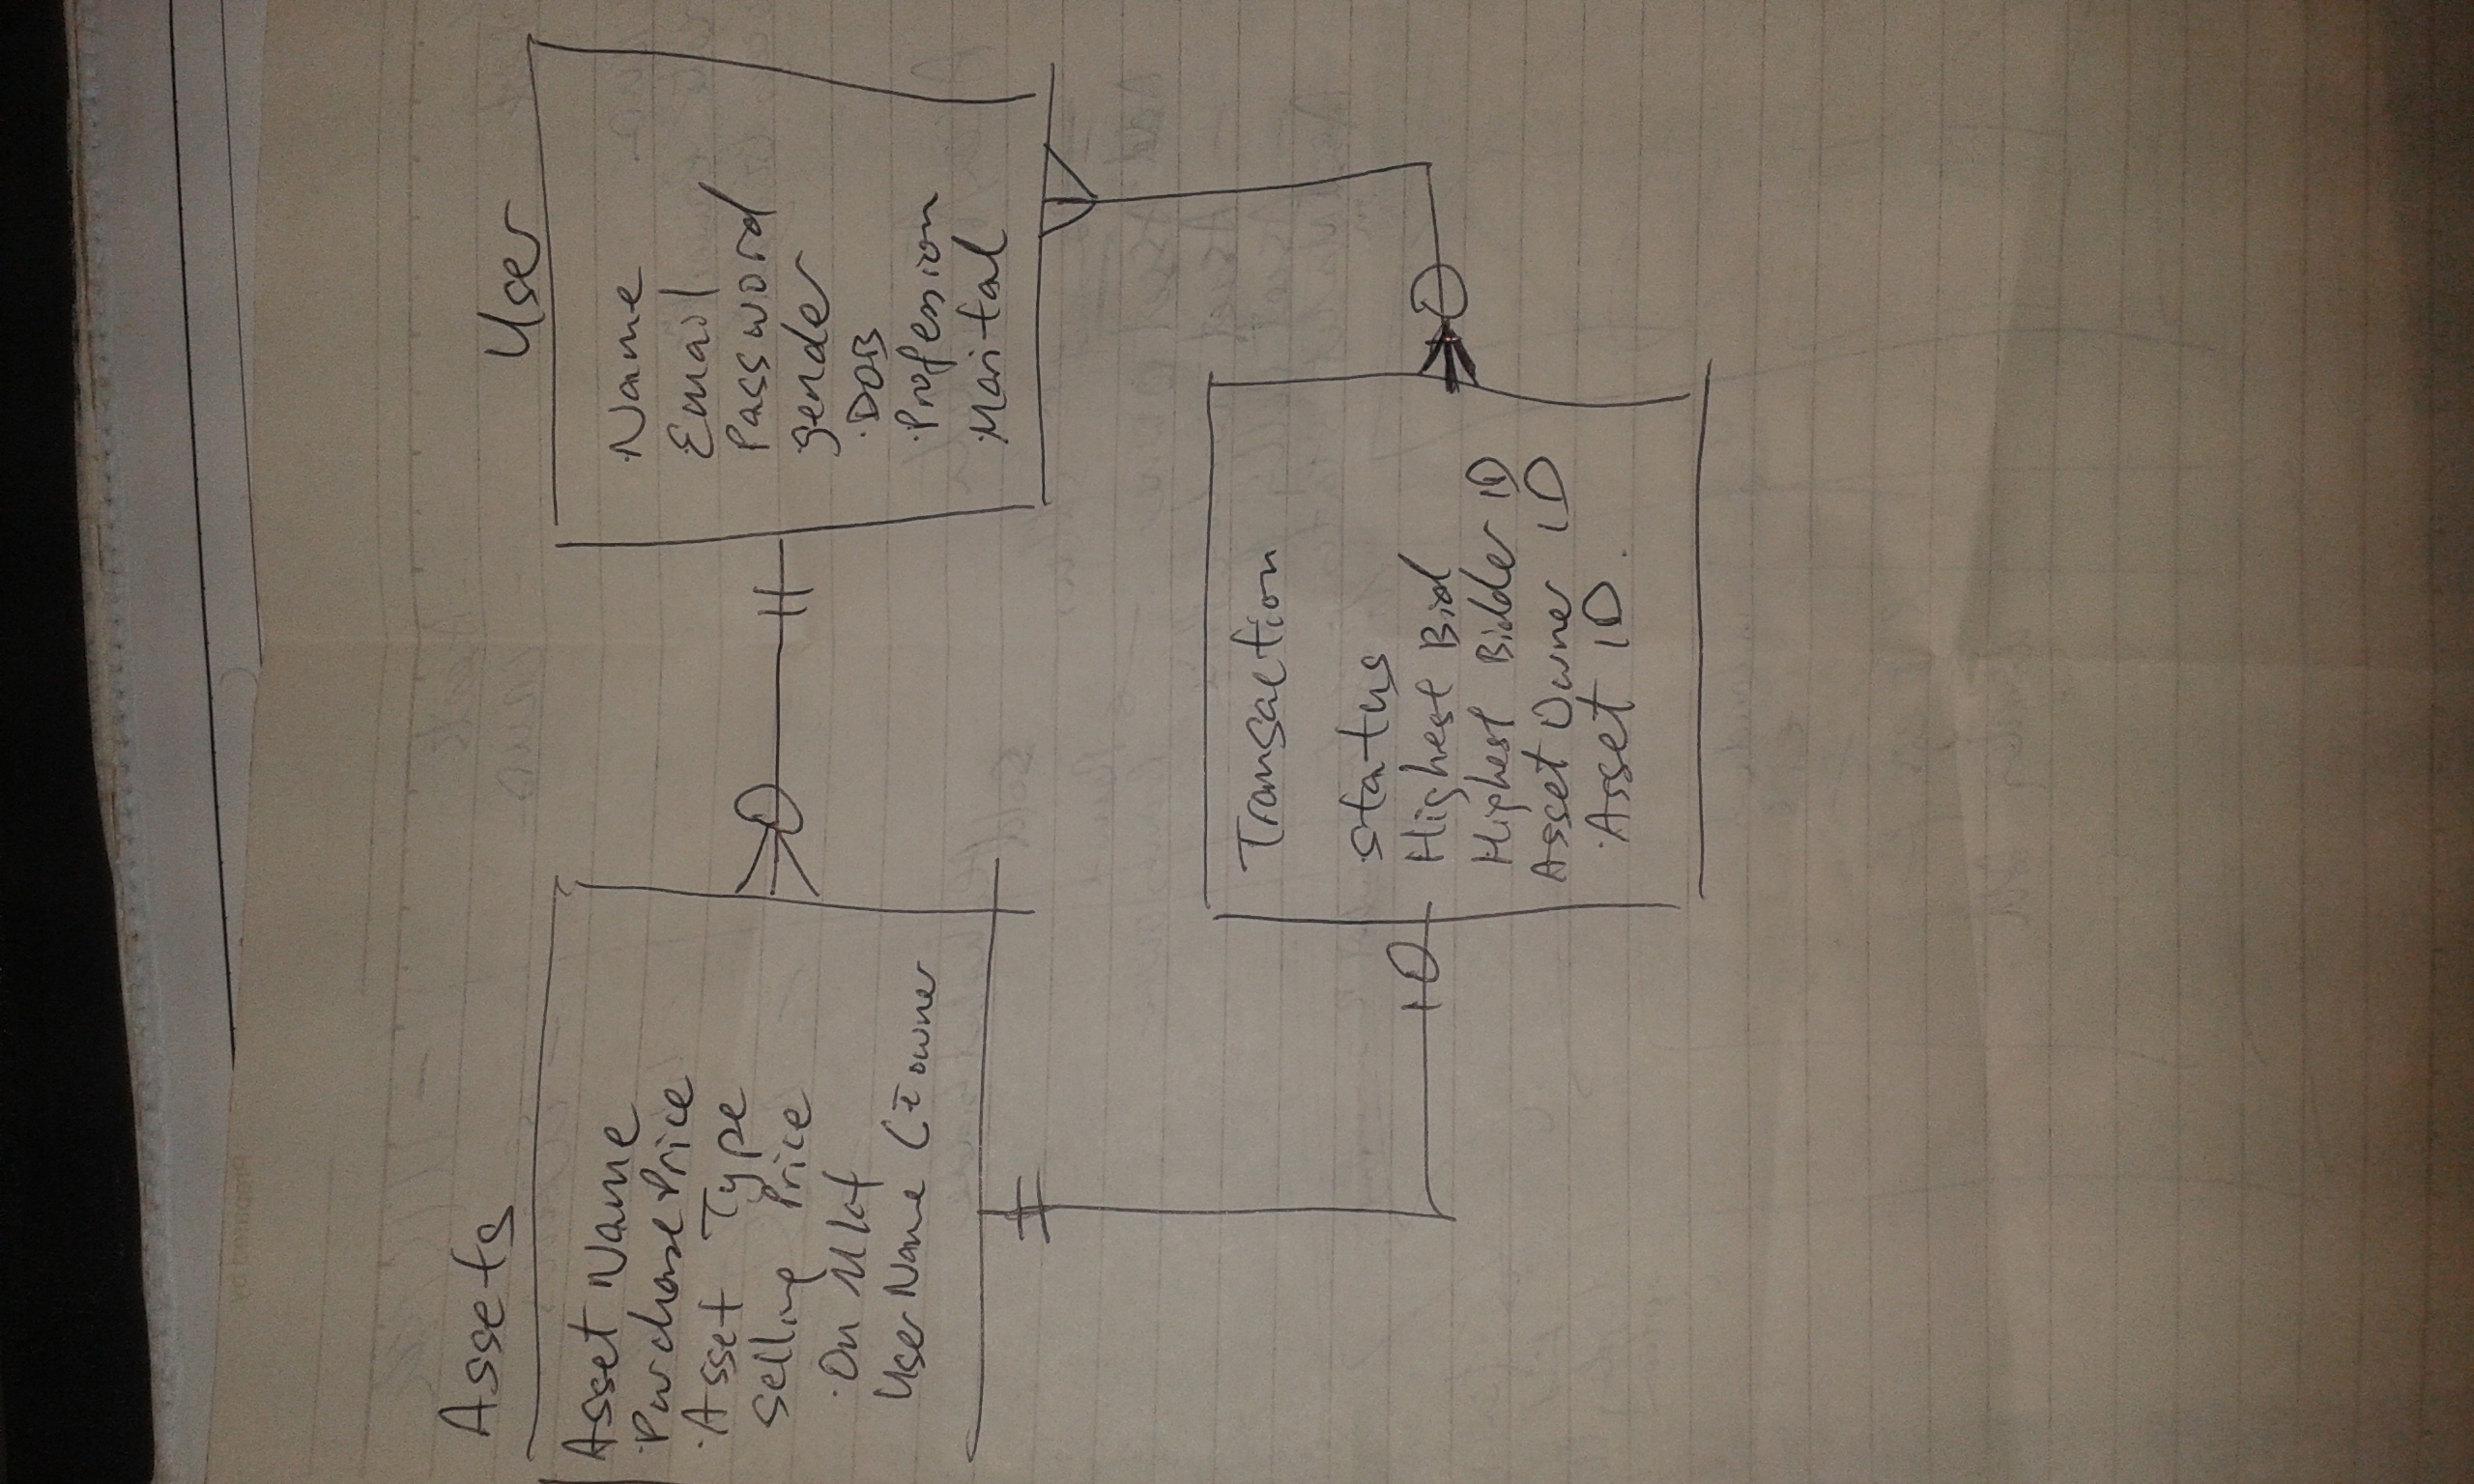 Prepared by
Assets
Asset Name
Purchase Price
Asset Type
Selling Price
On Mkt
User Name ( owner
User
Name
Email
Password
gender
DOB
Profession
Marital
Transaction
status
Highest Bid
Highest Bidder ID
Asset Owner ID
Asset ID.